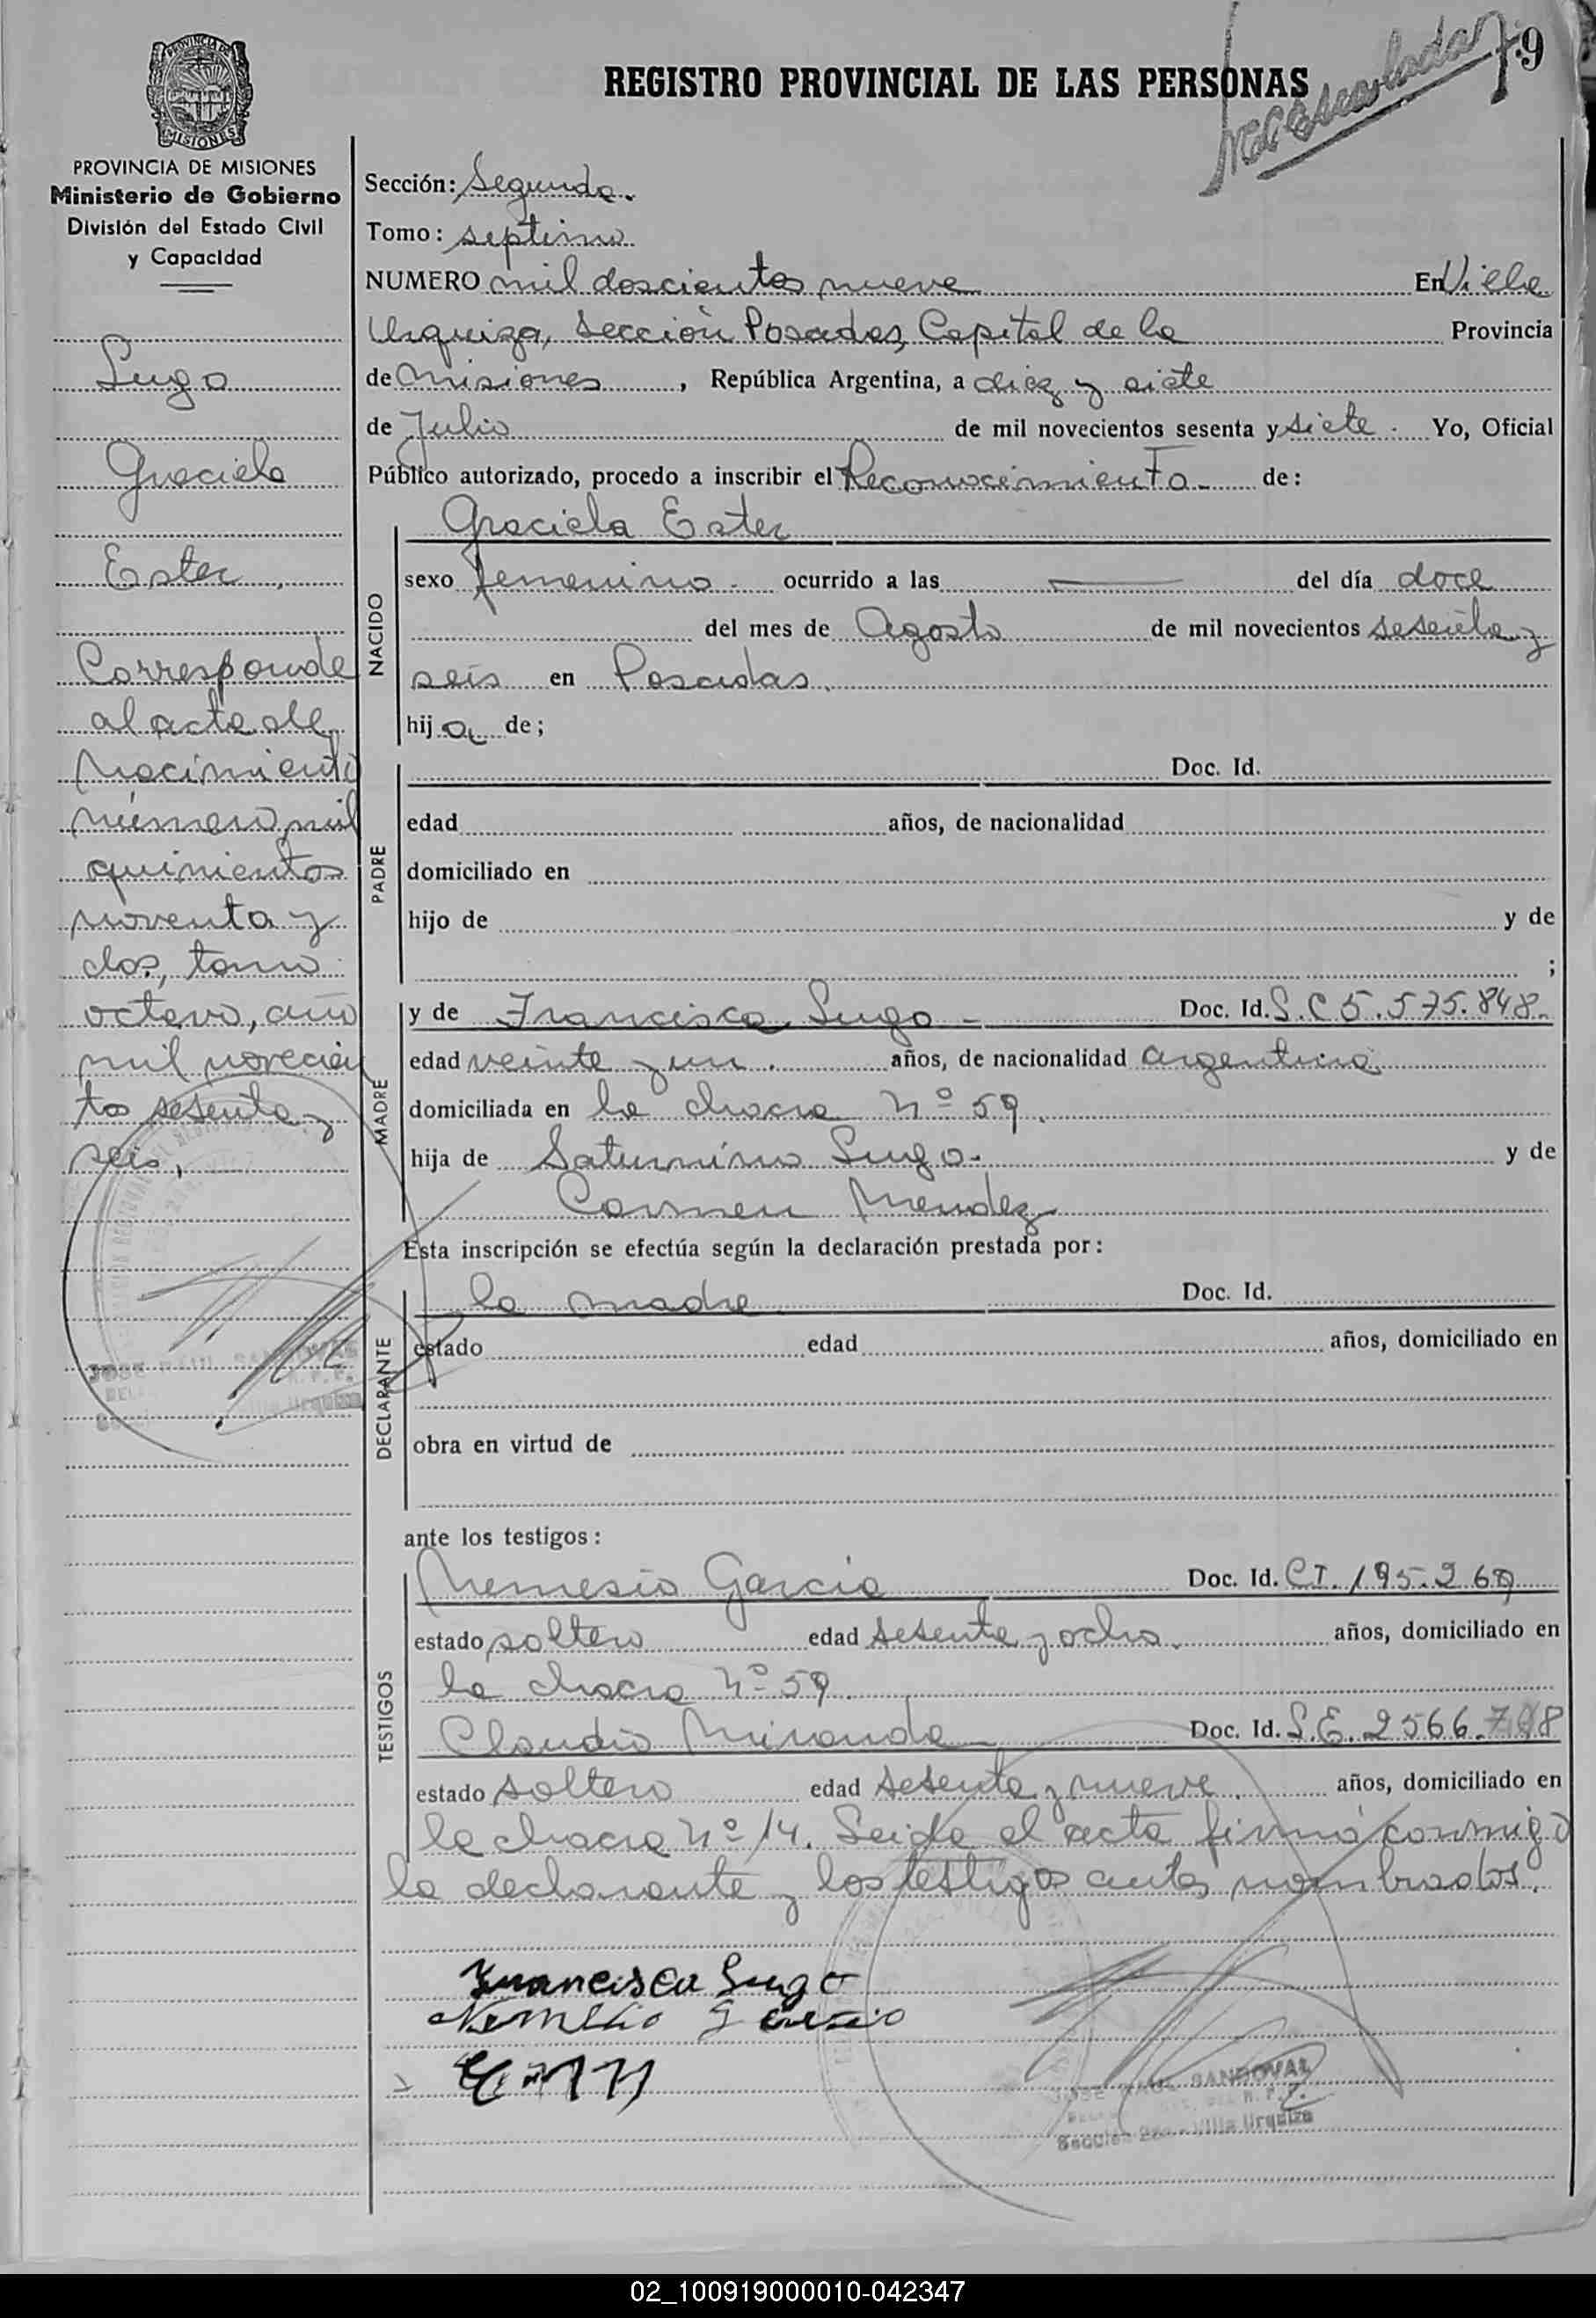 REGISTRO PROVINCIAL DE LAS PERSONAS
9
PROVINCIA DE
MISIONES
PROVINCIA DE MISIONES
Ministerio de Gobierno
División del Estado Civil
y Capacidad
Lugo
Graciela
Ester,
Corresponde
al acta de
Nacimiento
número mil
quinientos
noventa y
dos, tomo
octavo, año
mil novecien
tos sesenta y
seis,
JOSE RAUL SANDOVAL
Villa Urquiza
Sección: Segunda.
Tomo: septimo
NUMERO mil doscientos nueve En Villa
Urquiza, Sección Posadas, Capital de la Provincia
de Misiones, República Argentina, a diez y siete
de Julio de mil novecientos sesenta y siete. Yo, Oficial
Público autorizado, procedo a inscribir el Reconocimiento de:
NACIDO
Graciela Ester
sexo femenino. ocurrido a las — del día doce
del mes de Agosto de mil novecientos sesenta y
seis en Posadas.
hija de;
PADRE
Doc. Id.
edad años, de nacionalidad
domiciliado en
hijo de y de
;
MADRE
y de Francisca Lugo - Doc. Id. L.C 5.575.848.
edad veinte y un. años, de nacionalidad argentina
domiciliada en la chacra Nº 59.
hija de Saturnino Lugo. y de
Carmen Mendez
Esta inscripción se efectúa según la declaración prestada por:
DECLARANTE
la madre Doc. Id.
estado edad años, domiciliado en
obra en virtud de
ante los testigos:
TESTIGOS
Nemesio García Doc. Id. C.I. 195.269
estado soltero edad sesenta y ocho. años, domiciliado en
la chacra Nº 59
Claudio Miranda Doc. Id. L.E. 2566.
estado soltero edad sesenta y nueve. años, domiciliado en
la chacra Nº 14. Leida el acta firmó conmigo
la declarante y los testigos antes nombrados.
Francisca Lugo
Nemesio Garcia
JOSE RAUL SANDOVAL
Sección 2da - Villa Urquiza
02_100919000010-042347